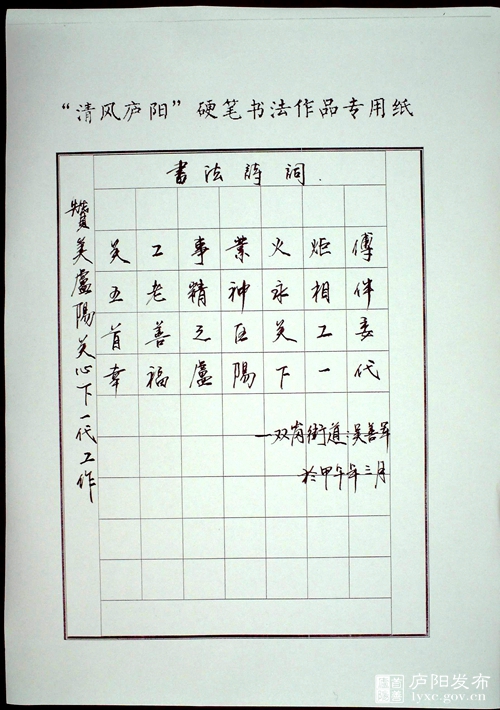 “清风庐阳”硬笔书法作品专用纸
書法詩詞.
赞美盧陽关心下一代工作
关工事業火炬傅
五老精神永相伴
首善之区关工委
幸福盧陽下一代
一双岗街道:吴善军
於甲午年三月
庐阳发布
www.lyxc.gov.cn